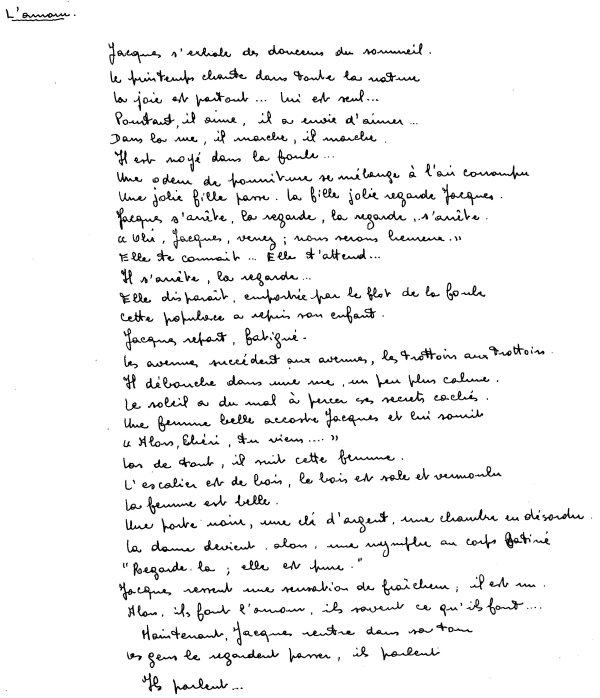 L'amour.
Jacques s'exhale des douceurs du sommeil.
Le printemps chante dans toute la nature
La joie est partout... Lui est seul...
Pourtant, il aime, il a envie d'aimer...
Dans la rue, il marche, il marche.
Il est noyé dans la foule...
Une odeur de pourriture se mélange à l'air corrompu
Une jolie fille passe. La fille jolie regarde Jacques.
Jacques s'arrête, la regarde, la regarde, s'arrête.
" Jacques, venez ; nous serons heureux."
Elle te connait... Elle t'attend...
Il s'arrête, la regarde...
Elle disparaît, emportée par le flot de la foule
Cette populace a repris son enfant.
Jacques repart, fatigué.
Les avenues succèdent aux avenues, les trottoirs aux trottoirs.
Il débouche dans une rue, un peu plus calme.
Le soleil a du mal à percer ses secrets cachés.
Une femme belle accoste Jacques et lui sourit
"Alors, Chéri, tu viens...."
Las de tout, il suit cette femme.
L'escalier est de bois, le bois est sale et vermoulu
La femme est belle.
Une porte noire, une clé d'argent, une chambre en désordre.
La dame devient, alors, une nymphe au corps satiné
"Regarde-la ; elle est pure."
Jacques ressent une sensation de fraîcheur ; il est nu.
Alors, ils font l'amour, ils savent ce qu'ils font....
Maintenant, Jacques rentre dans sa tour
Les gens le regardent passer, ils parlent
Ils parlent...